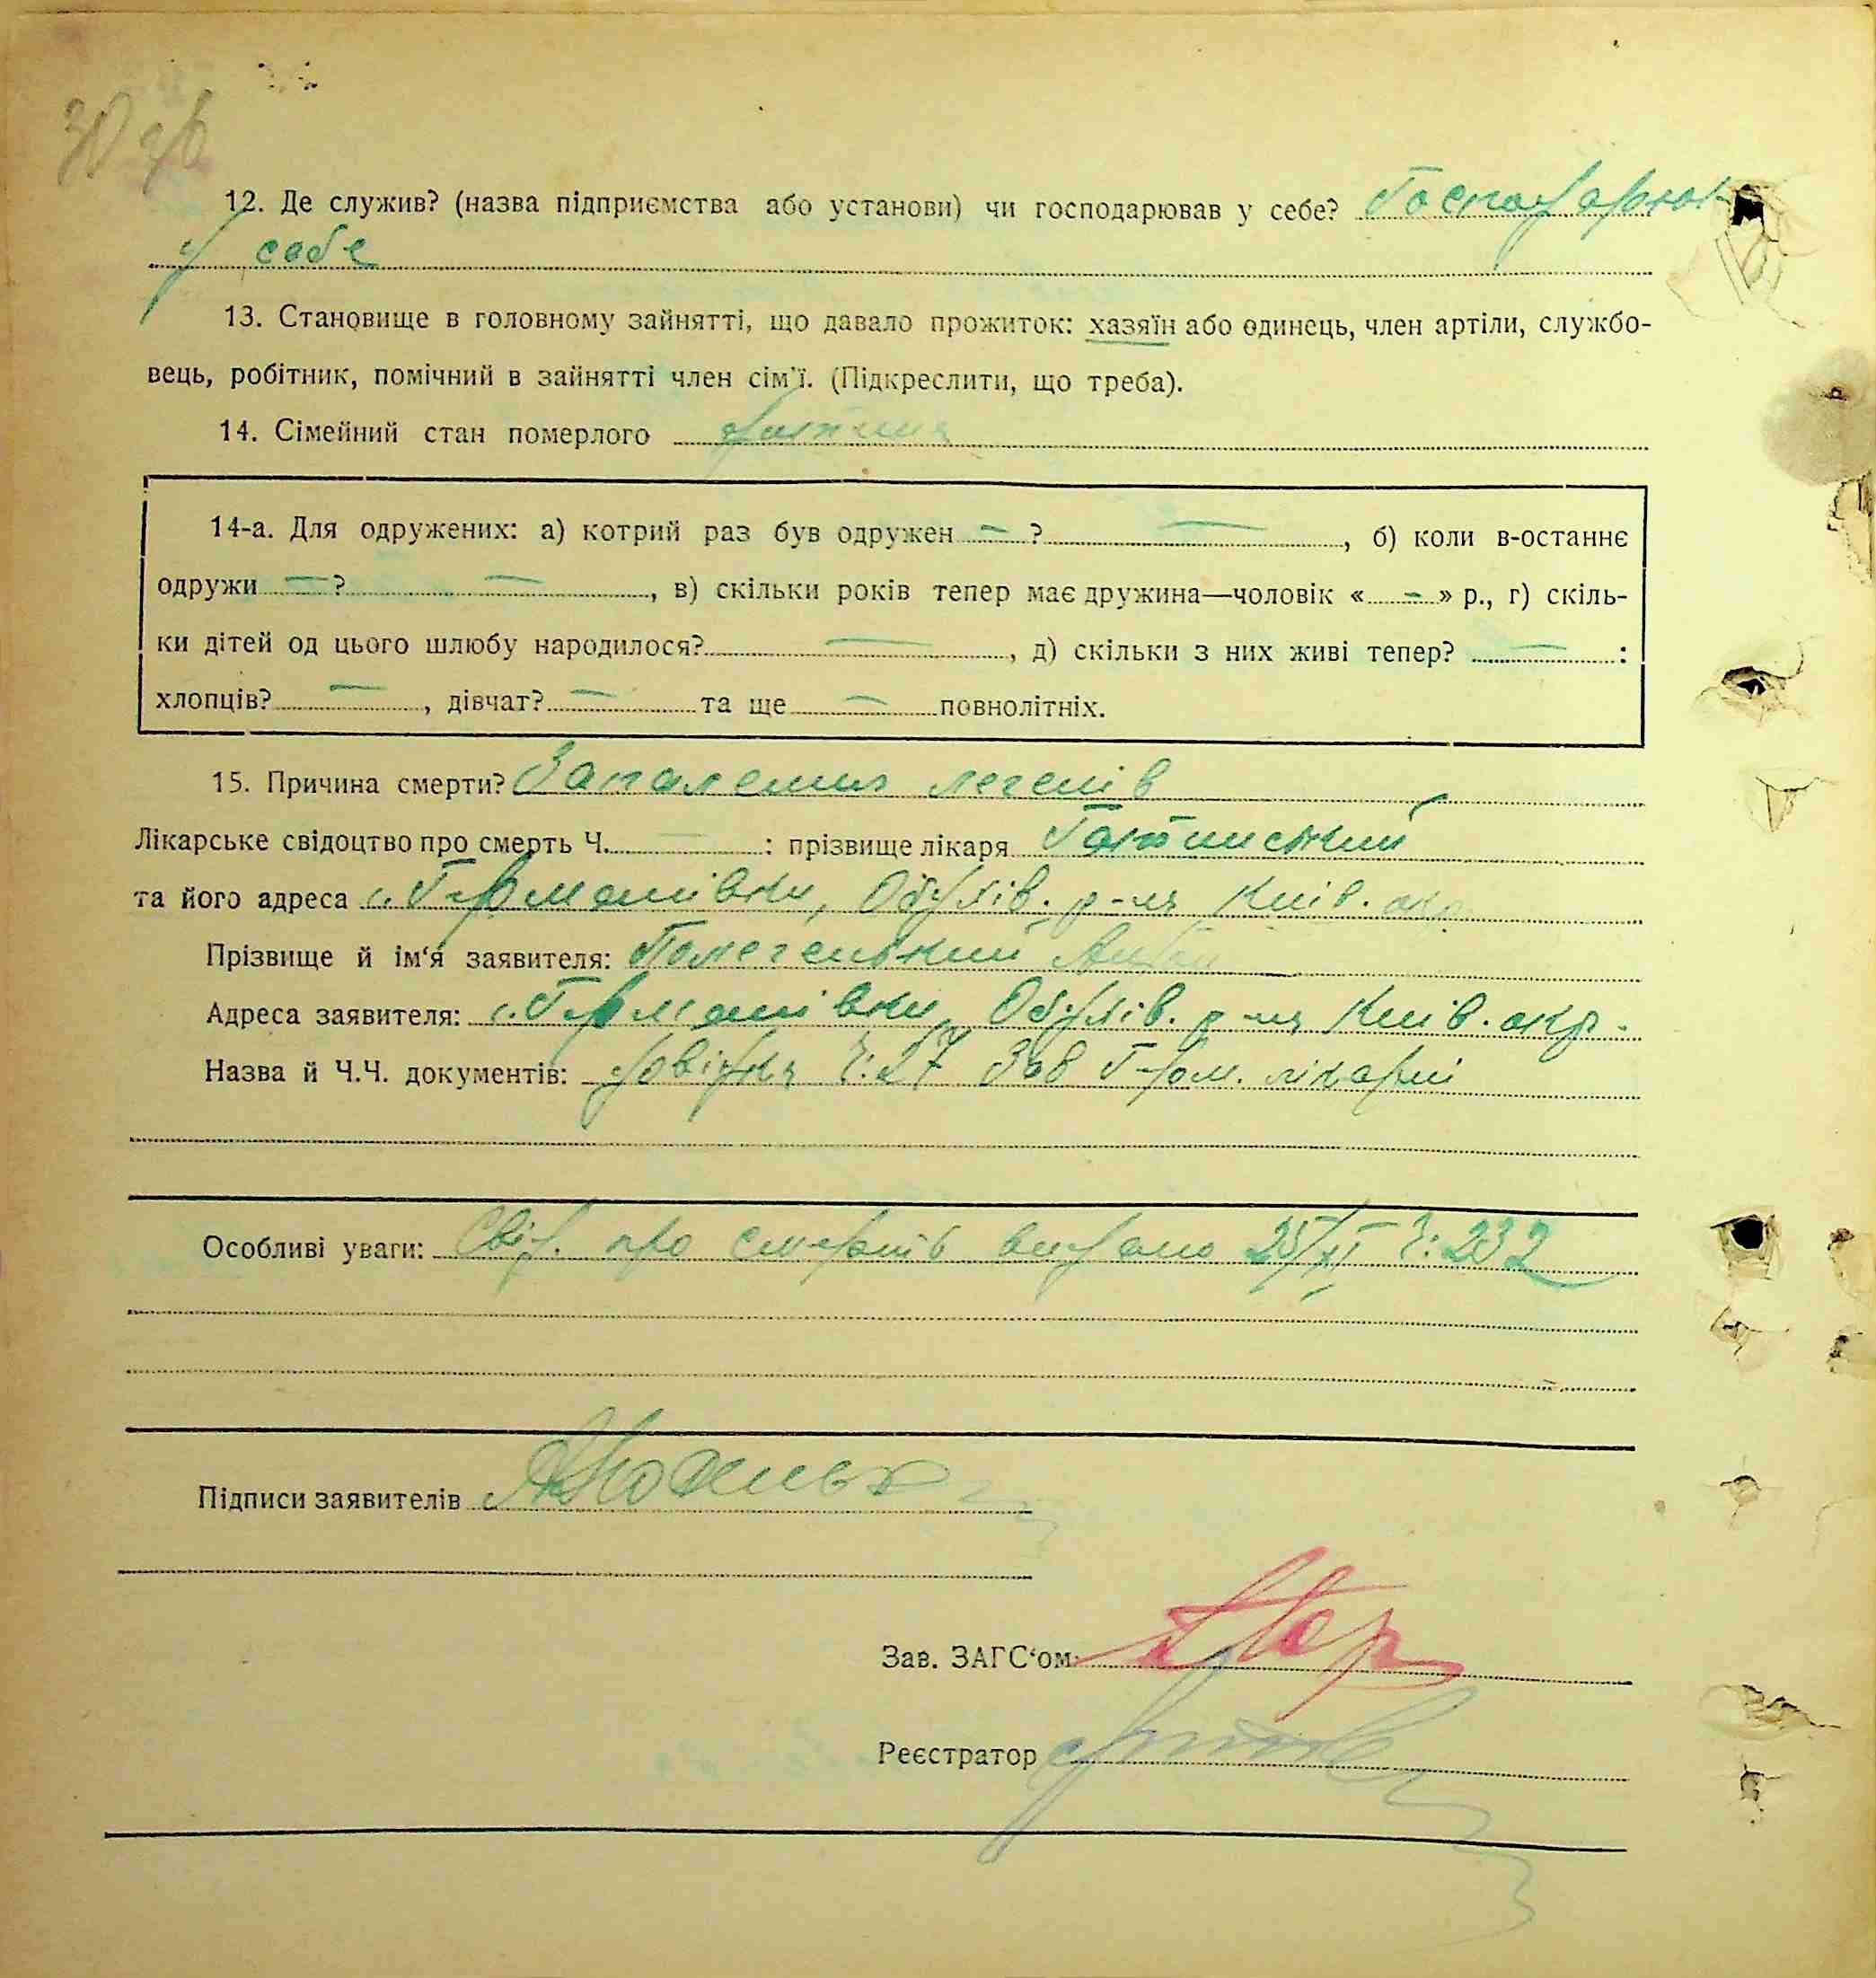 30 зв
12. Де служив? (назва підприємства або установи) чи господарював у себе? Господарював
у себе
13. Становище в головному зайнятті, що давало прожиток: хазяїн або одинець, член артіли, службо-
вець, робітник, помічний в зайнятті член сім'ї. (Підкреслити, що треба).
14. Сімейний стан померлого дитина
14-а. Для одружених: а) котрий раз був одружен — ? —, б) коли в-останнє
одружи — ? —, в) скільки років тепер має дружина—чоловік « — » р., г) скіль-
ки дітей од цього шлюбу народилося? —, д) скільки з них живі тепер? — :
хлопців? —, дівчат? — та ще — повнолітніх.
15. Причина смерти? Запалення легенів
Лікарське свідоцтво про смерть Ч. — : прізвище лікаря
та його адреса с. Германівки, Обухів. р-ня Київ. окр.
Прізвище й ім'я заявителя:
Адреса заявителя: с. Германівки Обухів. р-ня Київ. окр.
Назва й Ч.Ч. документів: довідка Ч: 27 Зав Герм. лікарні
Особливі уваги: Свід. про смерть видано 25/XI Ч: 232
Підписи заявителів
Зав. ЗАГС'ом
Реєстратор